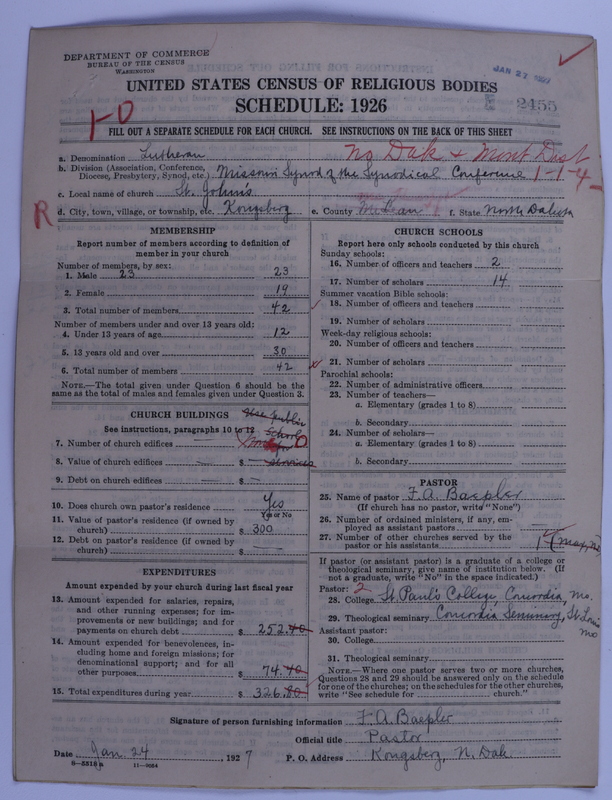 DEPARTMENT OF COMMERCE
BUREAU OF THE CENSUS
WASHINGTON
JAN 27 1927
UNITED STATES CENSUS OF RELIGIOUS BODIES
SCHEDULE: 1926
2455
1-0
FILL OUT A SEPARATE SCHEDULE FOR EACH CHURCH. SEE INSTRUCTIONS ON THE BACK OF THIS SHEET
No Dak & Mont Dist
1-1-4
a. Denomination Lutheran
b. Division (Association, Conference, Diocese, Presbytery, Synod, etc.) Missouri Synod of the Synodical Conference
c. Local name of church St. John's
R
d. City, town, village, or township, etc. Kongsberg e. County McLean f. State North Dakota
MEMBERSHIP
Report number of members according to definition of member in your church
Number of members, by sex:
1. Male 23 23
2. Female 19
3. Total number of members 42
Number of members under and over 13 years old:
4. Under 13 years of age 12
5. 13 years old and over 30
6. Total number of members 42
NOTE.—The total given under Question 6 should be the same as the total of males and females given under Question 3.
CHURCH BUILDINGS
Use public School
See instructions, paragraphs 10 to 12
7. Number of church edifices 0
8. Value of church edifices $ services
9. Debt on church edifices $ —
10. Does church own pastor's residence? Yes
Yes or No
11. Value of pastor's residence (if owned by church) $ 300
12. Debt on pastor's residence (if owned by church) $
EXPENDITURES
Amount expended by your church during last fiscal year
13. Amount expended for salaries, repairs, and other running expenses; for improvements or new buildings; and for payments on church debt $ 252.40
14. Amount expended for benevolences, including home and foreign missions; for denominational support; and for all other purposes $ 74.40
15. Total expenditures during year $ 326.80
CHURCH SCHOOLS
Report here only schools conducted by this church
Sunday schools:
16. Number of officers and teachers 2
17. Number of scholars 14
Summer vacation Bible schools:
18. Number of officers and teachers
19. Number of scholars
Week-day religious schools:
20. Number of officers and teachers
21. Number of scholars
Parochial schools:
22. Number of administrative officers
23. Number of teachers—
a. Elementary (grades 1 to 8)
b. Secondary
24. Number of scholars—
a. Elementary (grades 1 to 8)
b. Secondary
PASTOR
25. Name of pastor F. A. Baepler
(If church has no pastor, write "None")
26. Number of ordained ministers, if any, employed as assistant pastors
27. Number of other churches served by the pastor or his assistants 1
If pastor (or assistant pastor) is a graduate of a college or theological seminary, give name of institution below. (If not a graduate, write "No" in the space indicated.)
Pastor: 2
28. College St. Paul's College, Concordia, Mo.
29. Theological seminary Concordia Seminary, St. Louis Mo
Assistant pastor:
30. College
31. Theological seminary
NOTE.—Where one pastor serves two or more churches, Questions 28 and 29 should be answered only on the schedule for one of the churches; on the schedules for the other churches, write "See schedule for ____ church."
Signature of person furnishing information F. A. Baepler
Official title Pastor
Date Jan. 24, 1927 P. O. Address Kongsberg, N. Dak
8—5518a 11—9684